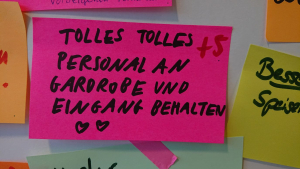 TOLLES TOLLES +5
PERSONAL AN
GARDROBE UND
EINGANG BEHALTEN
Besse
Speisen